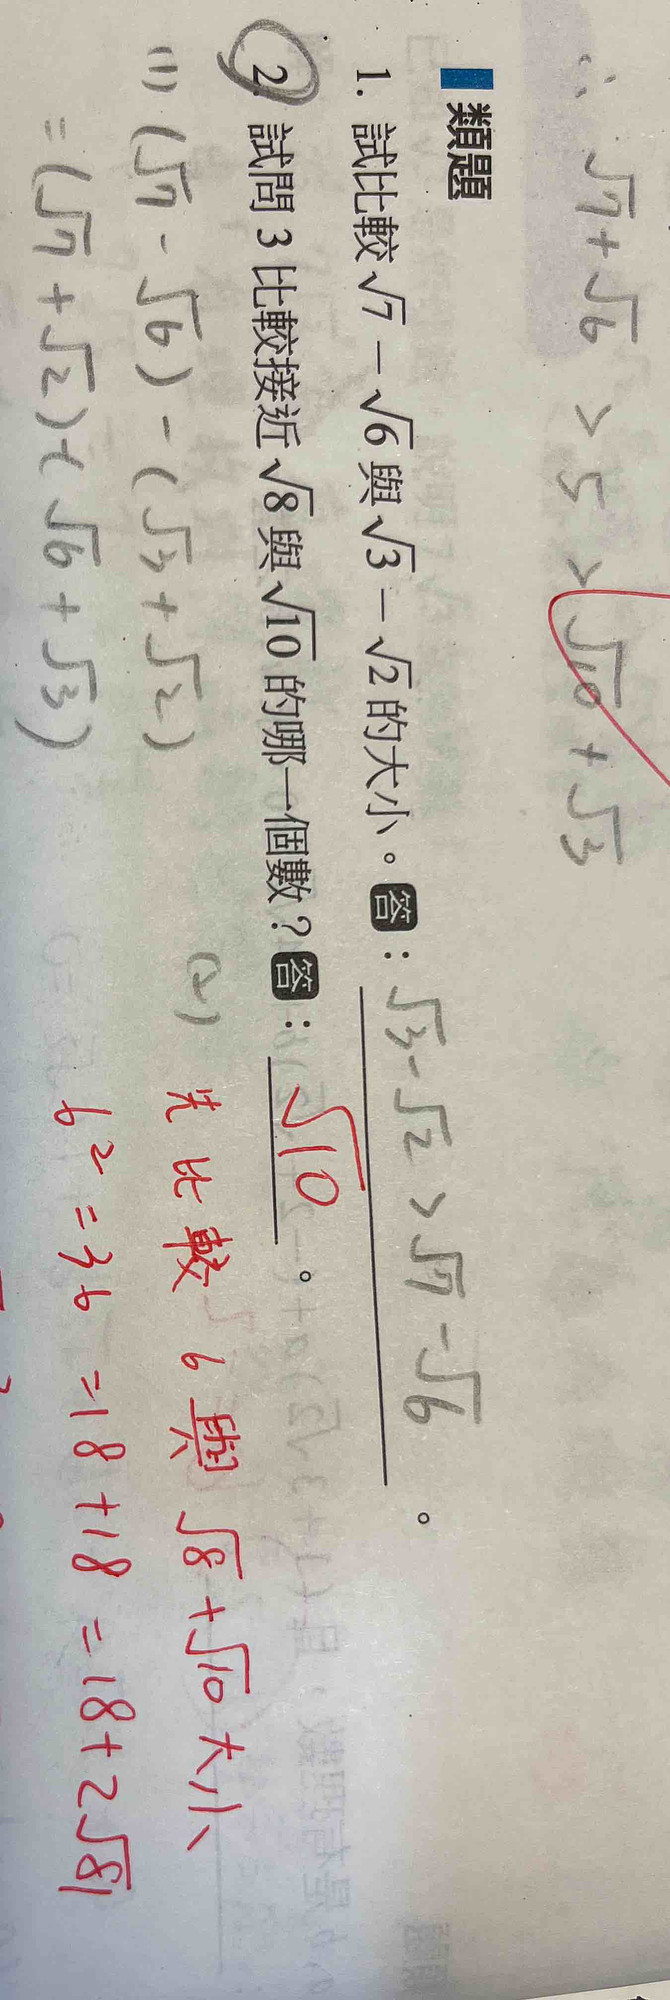 ∴ √7 + √6 > 5 > √10 + √3
類題
1. 試比較 √7 − √6 與 √3 − √2 的大小。答：√3 - √2 > √7 - √6 。
2. 試問 3 比較接近 √8 與 √10 的哪一個數？答：√10 。
(1) (√7 - √6) - (√3 + √2)
= (√7 + √2) - (√6 + √3)
(2) 先比較 6 與 √8 + √10 大小
6² = 36 = 18 + 18 = 18 + 2√81